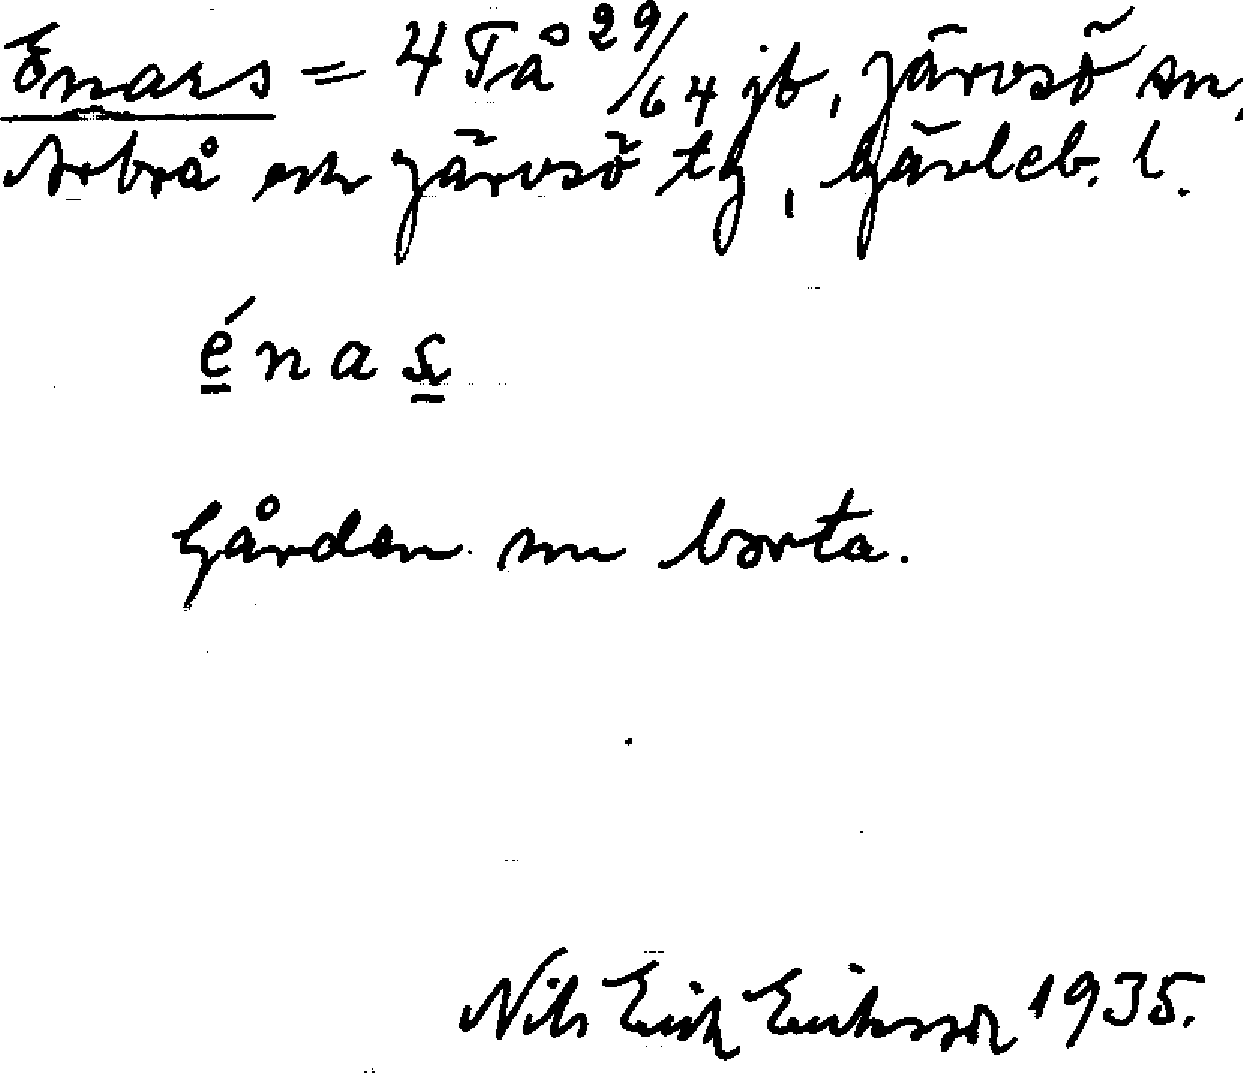 Enars = 4 Tå 29/64 jb, Järvsö sn,
Arbrå och Järvsö tg, Gävleb. l.
énas
Gården nu borta.
Nils Erik Eriksson 1935.